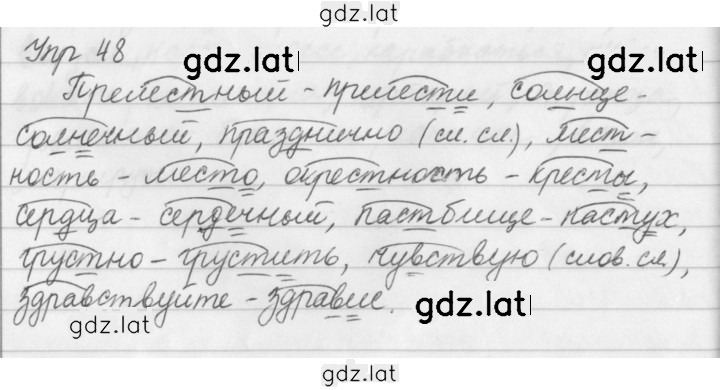 gdz.lat
Упр 48
gdz.lat gdz.lat
Прелестный - прелести, солнце -
солнечный, празднично (сл. сл.), мест -
ность - место, окрестность - кресты,
сердца - сердечный, пастбище - пастух,
грустно - грустить, чувствую (слов. сл),
здравствуйте - здравие.
gdz.lat gdz.lat
gdz.lat